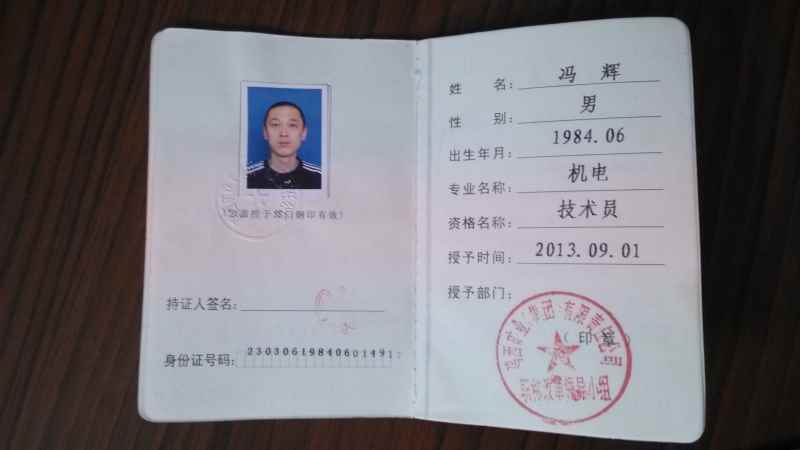 持证人签名:
身份证号码:
姓 名: 冯 辉
性 别: 男
出生年月: 1984.06
专业名称: 机电
资格名称: 技术员
授予时间: 2013.09.01
授予部门:
(印章)
(集团)有限责任公司
职称改革领导小组